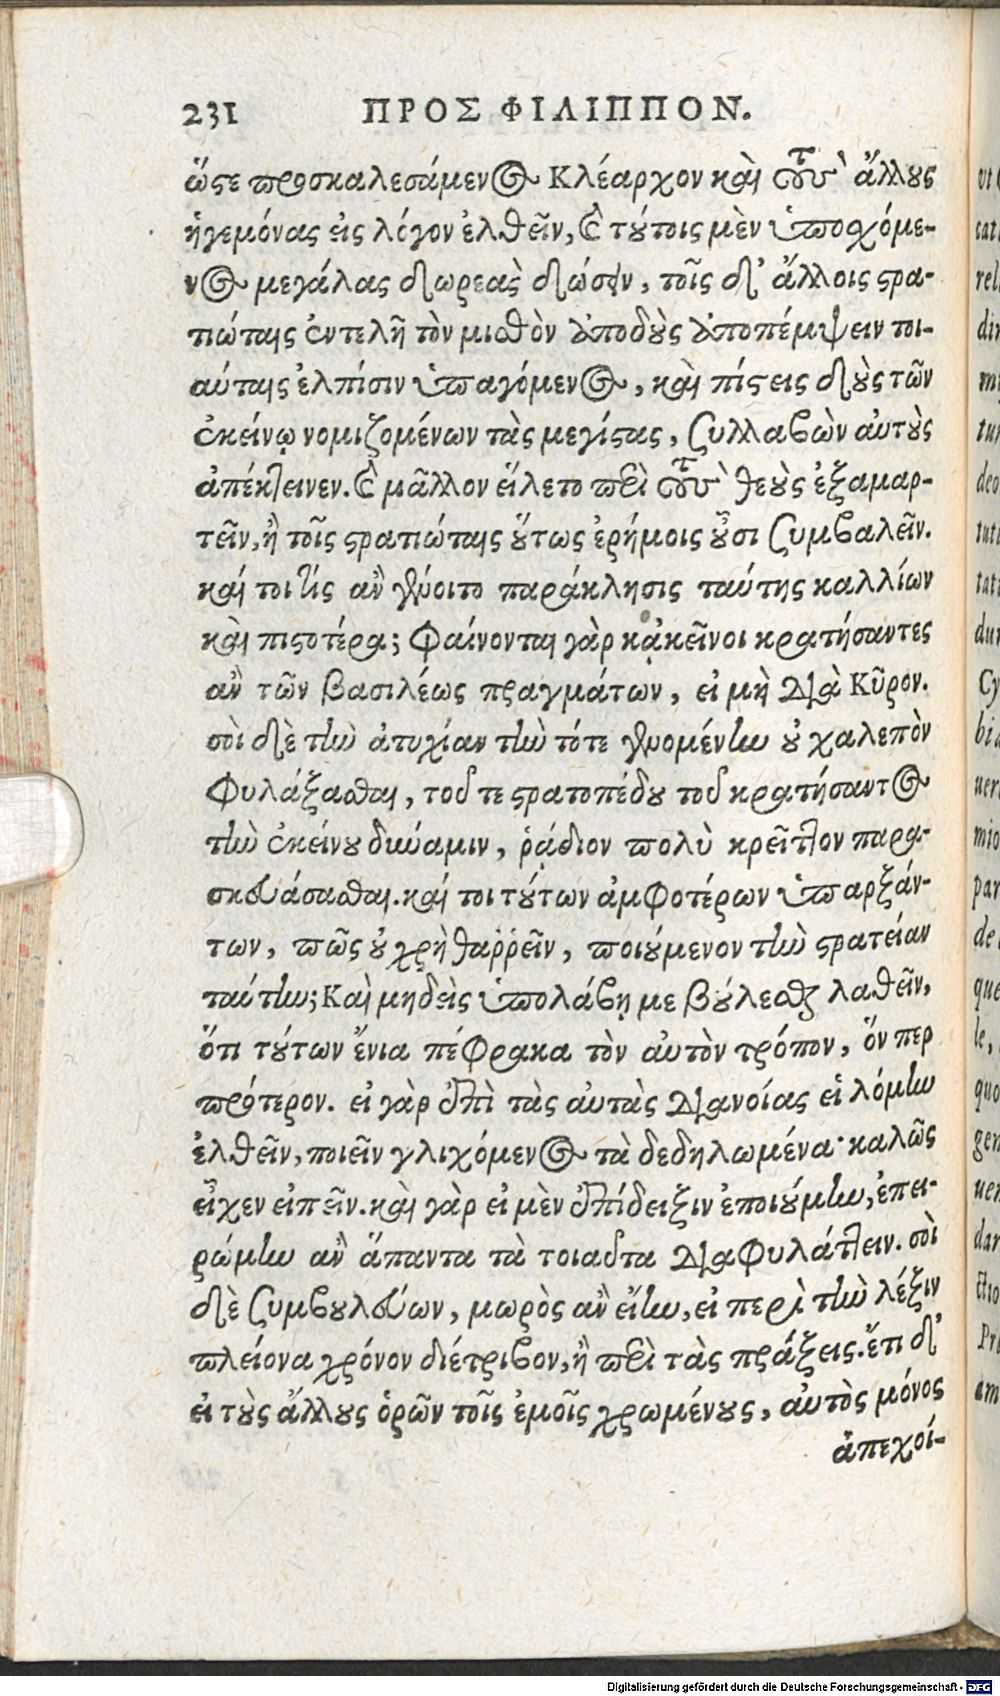 231 ΠΡΟΣ ΦΙΛΙΠΠΟΝ.
ὥςε προσκαλεσάμενος Κλέαρχον καὶ τοὺς ἄλλους
ἡγεμόνας εἰς λόγον ἐλθεῖν, καὶ τούτοις μὲν ὑποσχόμε-
νος μεγάλας δωρεὰς δώσειν, τοῖς δ' ἄλλοις ςρα-
τιώταις ἐντελῆ τὸν μισθὸν ἀποδοὺς ἀποπέμψειν τοι-
αύταις ἐλπίσιν ὑπαγόμενος, καὶ πίςεις δοὺς τῶν
ἐκείνῳ νομιζομένων τὰς μεγίςας, συλλαβὼν αὐτοὺς
ἀπέκτεινεν. καὶ μᾶλλον εἵλετο περὶ τοὺς θεοὺς ἐξαμαρ-
τεῖν, ἢ τοῖς ςρατιώταις οὕτως ἐρήμοις οὖσι συμβαλεῖν.
καί τοι τίς ἂν γένοιτο παράκλησις ταύτης καλλίων
καὶ πιςοτέρα; Φαίνονται γὰρ κᾀκεῖνοι κρατήσαντες
ἂν τῶν βασιλέως πραγμάτων, εἰ μὴ διὰ Κῦρον.
σοὶ δὲ τὴν ἀτυχίαν τὴν τότε γενομένην οὐ χαλεπὸν
φυλάξασθαι, τοῦ τε ςρατοπέδου τοῦ κρατήσαντος
τὴν ἐκείνου δύναμιν, ῥᾴδιον πολὺ κρεῖττον παρα-
σκευάσασθαι. καί τοι τούτων ἀμφοτέρων ὑπαρξάν-
των, πῶς οὐ χρὴ θαῤῥεῖν, ποιούμενον τὴν ςρατείαν
ταύτην; Καὶ μηδεὶς ὑπολάβῃ με βούλεσθαι λαθεῖν,
ὅτι τούτων ἔνια πέφρακα τὸν αὐτὸν τρόπον, ὅν περ
πρότερον. εἰ γὰρ ἐπὶ τὰς αὐτὰς διανοίας εἱλόμην
ἐλθεῖν, ποιεῖν γλιχόμενος τὰ δεδηλωμένα· καλῶς
εἶχεν εἰπεῖν. καὶ γὰρ εἰ μὲν ἐπίδειξιν ἐποιούμην, ἐπει-
ρώμην ἂν ἅπαντα τὰ τοιαῦτα διαφυλάττειν. σοὶ
δὲ συμβουλεύων, μωρὸς ἂν εἴην, εἰ περὶ τὴν λέξιν
πλείονα χρόνον διέτριβον, ἢ περὶ τὰς πράξεις. ἔτι δ'
εἰ τοὺς ἄλλους ὁρῶν τοῖς ἐμοῖς χρωμένους, αὐτὸς μόνος
ἀπεχοί-
Digitalisierung gefördert durch die Deutsche Forschungsgemeinschaft - DFG